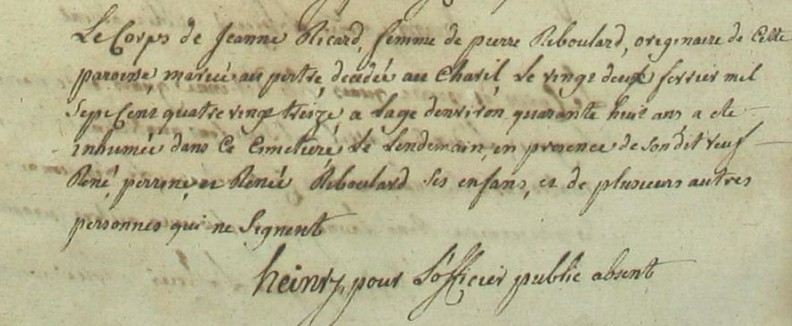 Le Corps de Jeanne Ricard, femme de pierre Reboulard, originaire de Cette
paroisse mariée au pertre, decedée au Charil Le vingt deux fevrier mil
Sept Cent quatre vingt treize a Lage denviron quarante huit ans a ete
inhumée dans Ce Cimetiere Le Lendemain, en presence de Son dit veuf
René, perrine et Renée Reboulard Ses enfans, et de plusieurs autres
personnes qui ne Signent
heinry, pour L'officier public absent